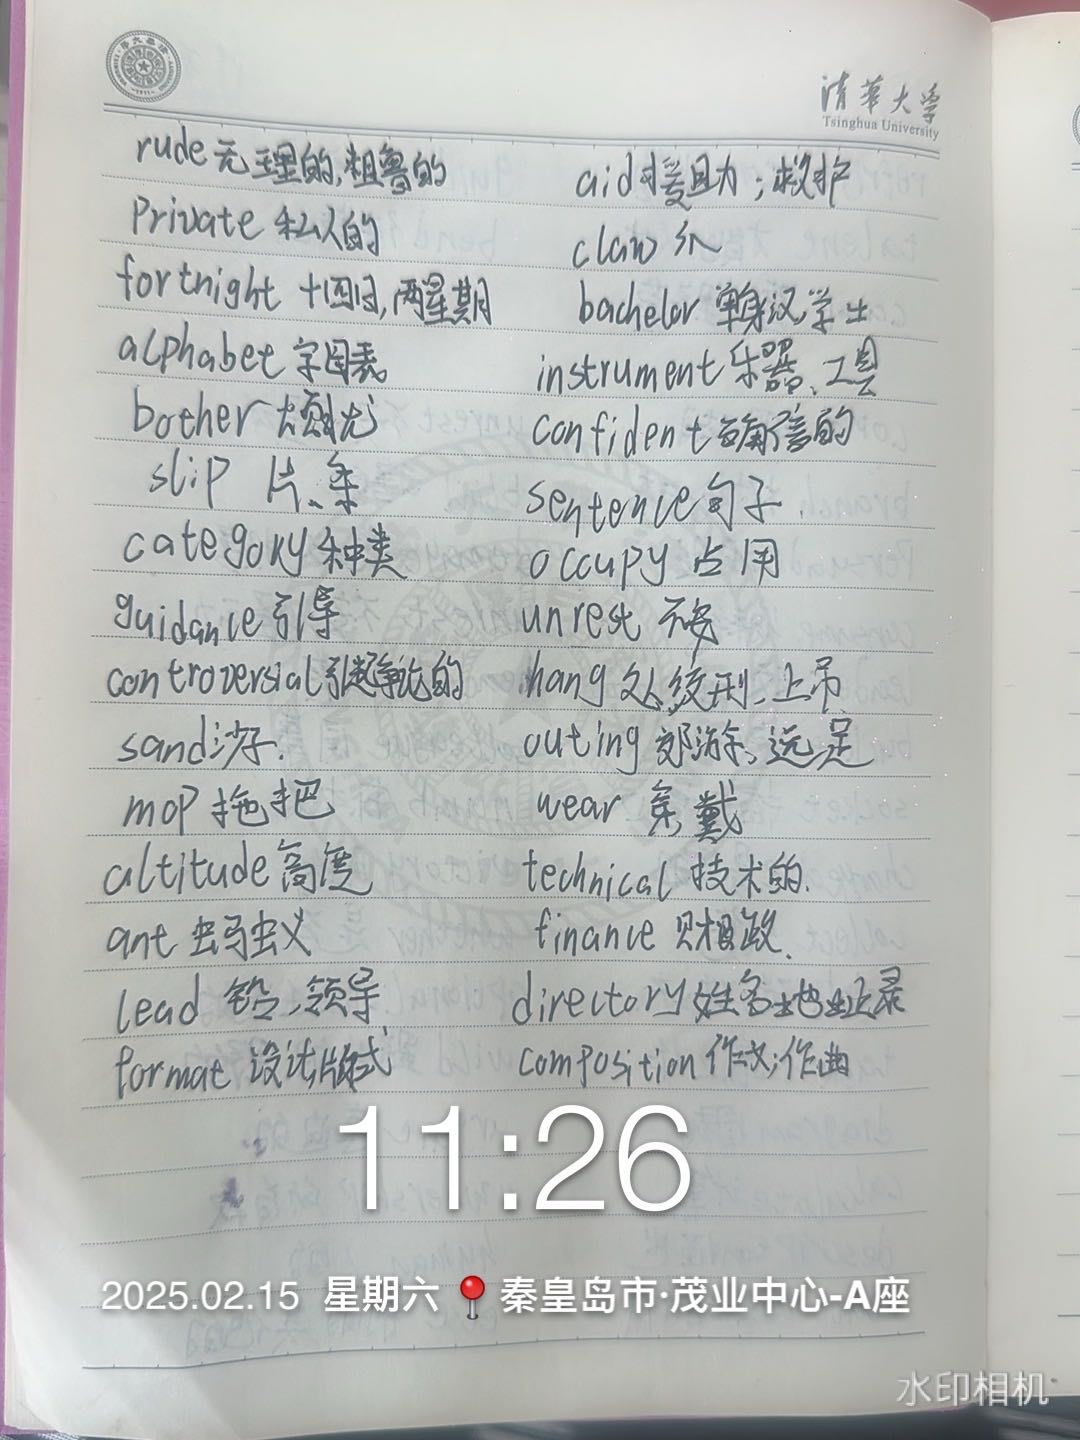 清华大学
Tsinghua University
rude 无理的,粗鲁的
private 私人的
fortnight 十四日,两星期
alphabet 字母表
bother 打扰
slip 片、条
category 种类
guidance 引导
controversial 引起争论的
sand 沙子.
mop 拖把
altitude 高度
ant 蚂蚁
lead 铅、领导
format 设计,版式
aid 援助；救护
claw 爪
bachelor 单身汉,学士
instrument 乐器、工具
confident 确信的
sentence 句子.
occupy 占用
unrest 不安
hang 处绞刑、上吊
outing 郊游、远足
wear 穿,戴
technical 技术的.
finance 财政
directory 姓名地址录
composition 作文;作曲
11:26
2025.02.15 星期六 秦皇岛市·茂业中心-A座
水印相机